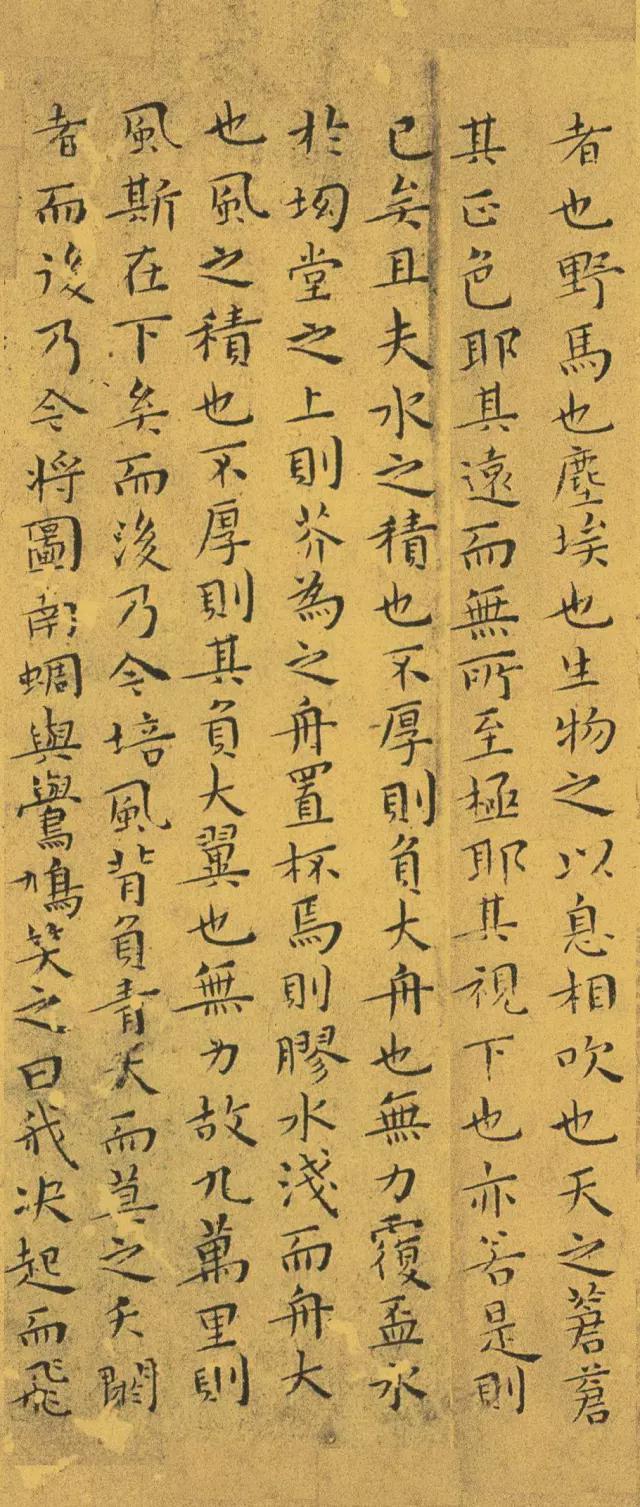 者也野馬也塵埃也生物之以息相吹也天之蒼蒼
其正色耶其遠而無所至極耶其視下也亦若是則
已矣且夫水之積也不厚則負大舟也無力覆盃水
於坳堂之上則芥為之舟置杯焉則膠水淺而舟大
也風之積也不厚則其負大翼也無力故九萬里則
風斯在下矣而後乃今培風背負青天而莫之夭閼
者而後乃今將圖南蜩與鷽鳩笑之曰我决起而飛